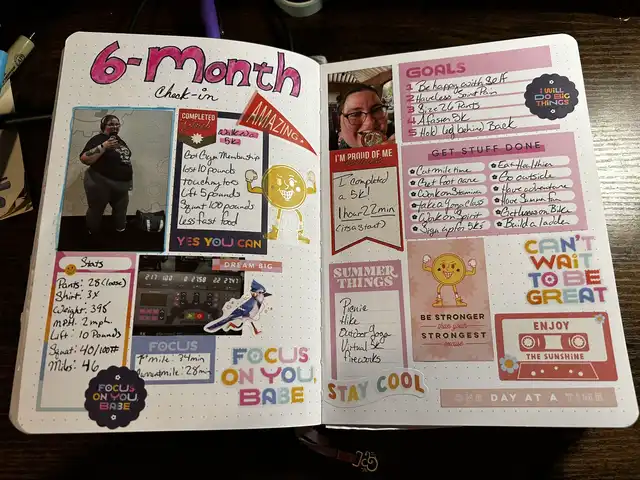 6-Month
Check-in
AMAZING
COMPLETED
5k
Got Gym Membership
lost 10 pounds
touching toes
Lift 5 pounds
Squat 100 pounds
less fast food
YES YOU CAN
Stats
Pants: 28 (loose)
Shirt: 3x
Weight: 398
MPH: 2 mph
Lift: 10 Pounds
Squat: 40/100#
Miles: 46
FOCUS ON YOU, BABE
DREAM BIG
FOCUS
1st mile: 34min
Current mile: 28min
FOCUS
ON YOU,
BABE
I'M PROUD OF ME
I completed
a 5k!
1 hour 22 min
(its a start)
SUMMER
THINGS
Picnic
Hike
Outdoor yoga
Virtual 5k
fireworks
STAY COOL
GOALS
1 Be happy with self
2 Have less Joint Pain
3 Size 26 Pants
4 A fason 5k
5 Hold leg behind Back
I WILL
DO BIG
THINGS
GET STUFF DONE
Cut mile time
Get foot care
Work on Stamina
take a yoga class
Work on Spirit
Sign up for 5ks
Eat Healthier
Go outside
Have adventure
Have Summer fun
Get lesson Bike
Build a ladder
BE STRONGER
than your
STRONGEST
excuse
CAN'T
WAIT
TO BE
GREAT
ENJOY
THE SUNSHINE
ONE DAY AT A TIME